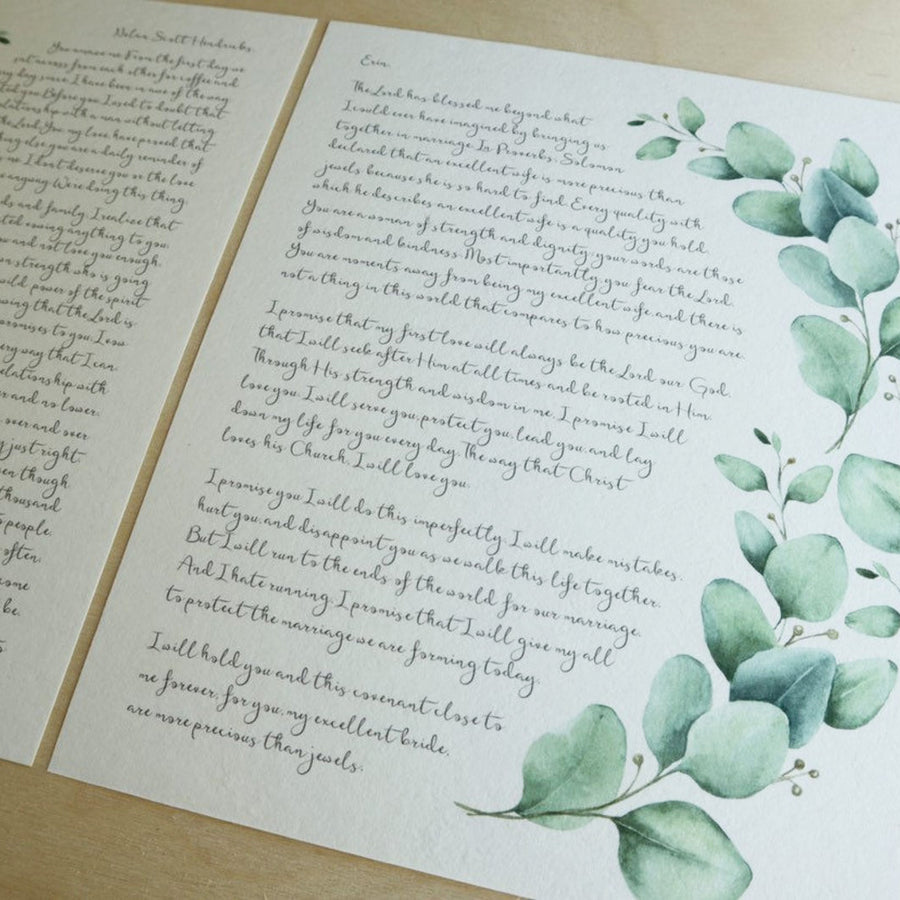 Nolan Scott Hendricks,
You amaze me. From the first day we
sat across from each other for coffee and
day since, I have been in awe of the way
you. Before you, I used to doubt that
relationship with a man without letting
the Lord. You, my love, have proved that
else, you are a daily reminder of
me. I don't deserve you or the love
anyway. We're doing this thing
and family, I realize that
owing anything to you:
and not love you enough.
strength who is going
wild power of the spirit
that the Lord is
promises to you. I vow
every way that I can.
relationship with
and no lower.
over and over
just right.
even though
thousand
people.
often:
come
be.
Erin,
The Lord has blessed me beyond what
I could ever have imagined by bringing us
together in marriage. In Proverbs, Solomon
declared that an excellent wife is more precious than
jewels, because she is so hard to find. Every quality with
which he describes an excellent wife is a quality you hold.
You are a woman of strength and dignity, your words are those
of wisdom and kindness. Most importantly, you fear the Lord.
You are moments away from being my excellent wife, and there is
not a thing in this world that compares to how precious you are.
I promise that my first love will always be the Lord our God,
that I will seek after Him at all times and be rooted in Him.
Through His strength and wisdom in me, I promise I will
love you. I will serve you, protect you, lead you, and lay
down my life for you every day. The way that Christ
loves his Church, I will love you.
I promise you I will do this imperfectly. I will make mistakes,
hurt you, and disappoint you as we walk this life together.
But I will run to the ends of the world for our marriage.
And I hate running. I promise that I will give my all
to protect the marriage we are forming today.
I will hold you and this covenant close to
me forever, for you, my excellent bride,
are more precious than jewels.